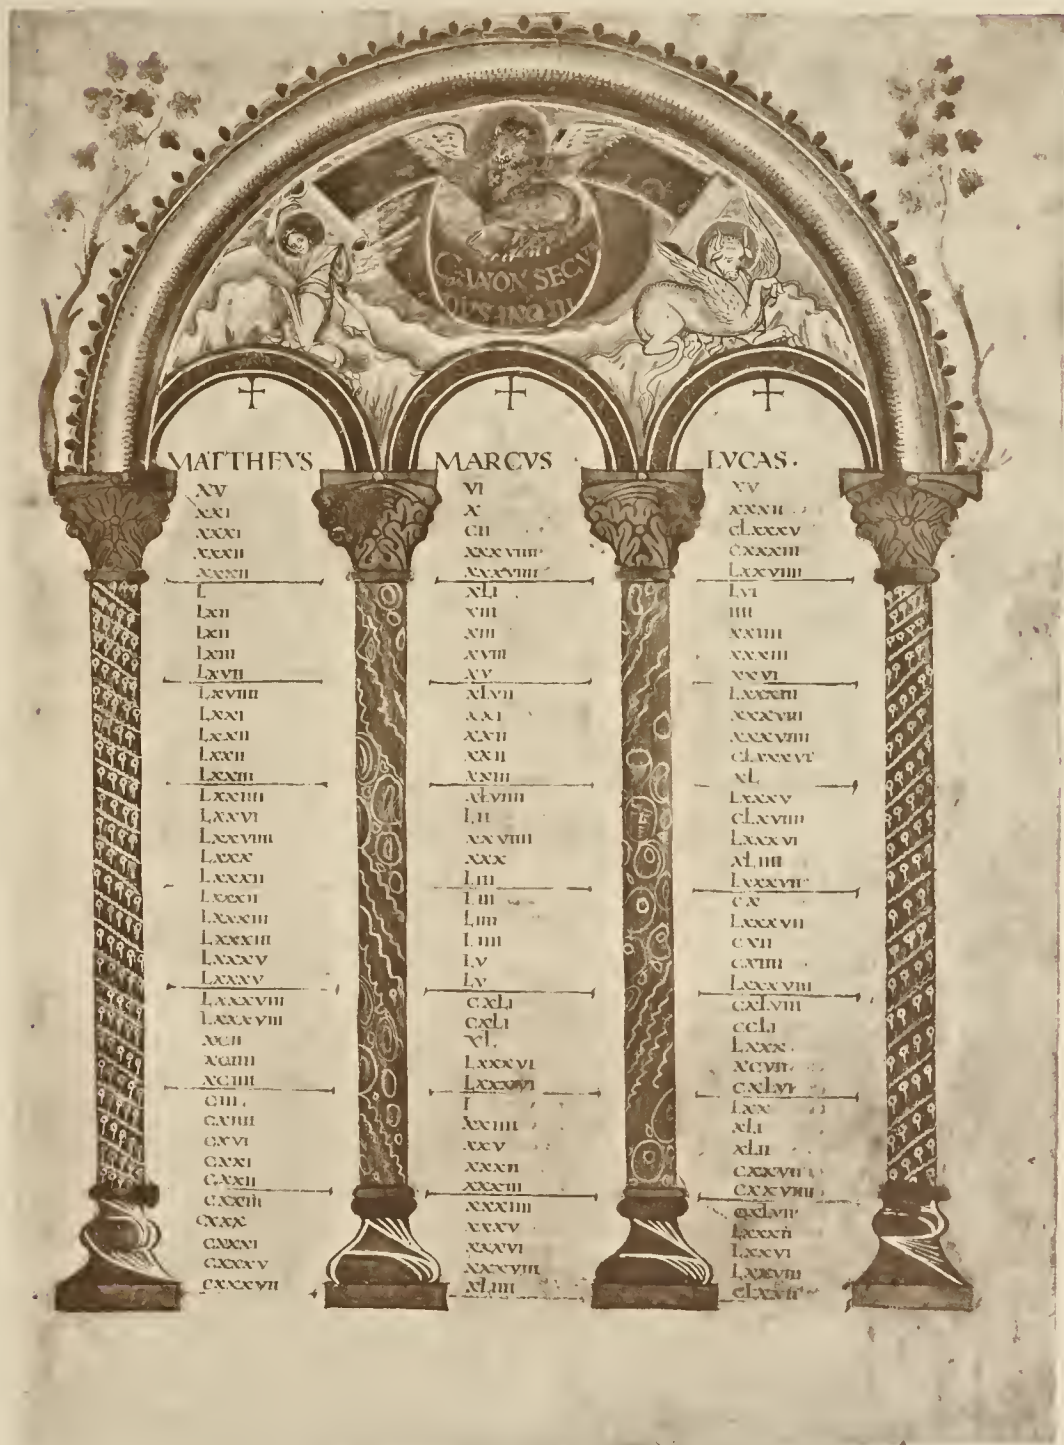 CANON SECV
MATTHEVS MARCVS LVCAS·
XV VI XV
XXI X XXXII
XXXI CII CLXXXV
XXXII XXXVIIII CXXXIII
XXXII XXXVIIII LXXVIIII
L XLI LVI
LXII XIII IIII
LXII XIII XXIIII
LXIII XVIII XXXIII
LXVII XV XXVI
LXVIIII XLVII LXXXIII
LXXI XXI XXXVIII
LXXII XXII XXXVIIII
LXXII XXII CLXXXVI
LXXIII XXIII XL
LXXIIII XLVIIII LXXXV
LXXVI LII CLXVIIII
LXXVIIII XXVIIII LXXXVI
LXXX XXX XLIIII
LXXXII LIII LXXXVII
LXXXII LIII CX
LXXXIII LIIII LXXXVII
LXXXIII LIIII CXII
LXXXV LV CXIIII
LXXXV LV LXXXVIII
LXXXVIII CXLI CXLVIII
LXXXVIII CXLI CCLI
XCII XL LXXX
XCIIII LXXXVI XCVII
XCIIII LXXXVI CXLVI
CIII I LXX
CXIIII XXIIII XLI
CXVI XXV XLII
CXXI XXXII CXXVII
CXXII XXXIII CXXVIIII
CXXIII XXXIIII CXLVII
CXXX XXXV LXXXII
CXXXI XXXVI LXXVI
CXXXV XXXVIII LXXVIII
CXXXVII XLIIII CLXVII